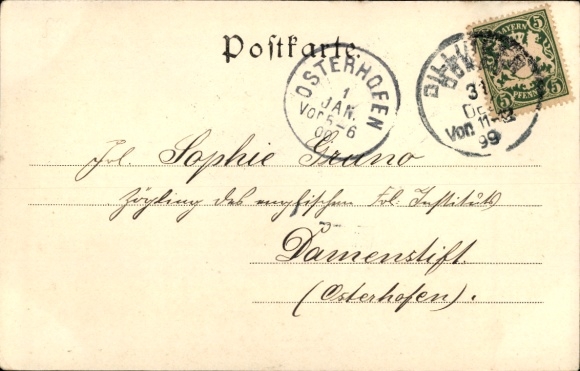 Postkarte.
OSTERHOFEN
1
JAN.
Vor 5-6
00
DILLINGEN
31
DEZ
Von 11-12
99
BAYERN
5
5
PFENNIG
5
5
Frl. Sophie Gruno
Zögling des englischen Frl. Instituts
Damenstift
(Osterhofen).